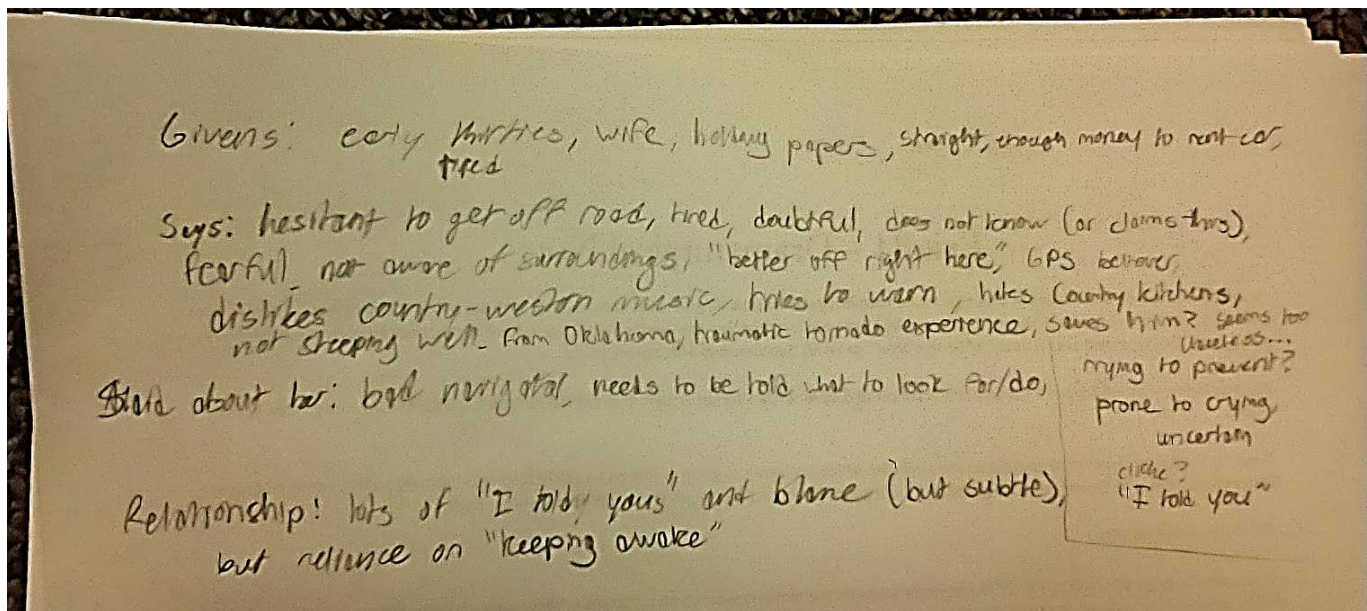 Givens: early thirties, wife, holding papers, straight, enough money to rent car,
tired
Says: hesitant to get off road, tired, doubtful, does not know (or claims this),
fearful, not aware of surroundings, "better off right here," GPS believer,
dislikes country-western music, tries to warn, likes Country Kitchens,
not sleeping well. From Oklahoma, traumatic tornado experience, saves him? seems too
useless...
trying to prevent?
Said about her: bad navigator, needs to be told what to look for/do,
prone to crying,
uncertain
cliche?
"I told you"
Relationship: lots of "I told yous" and blame (but subtle),
but reliance on "keeping awake"